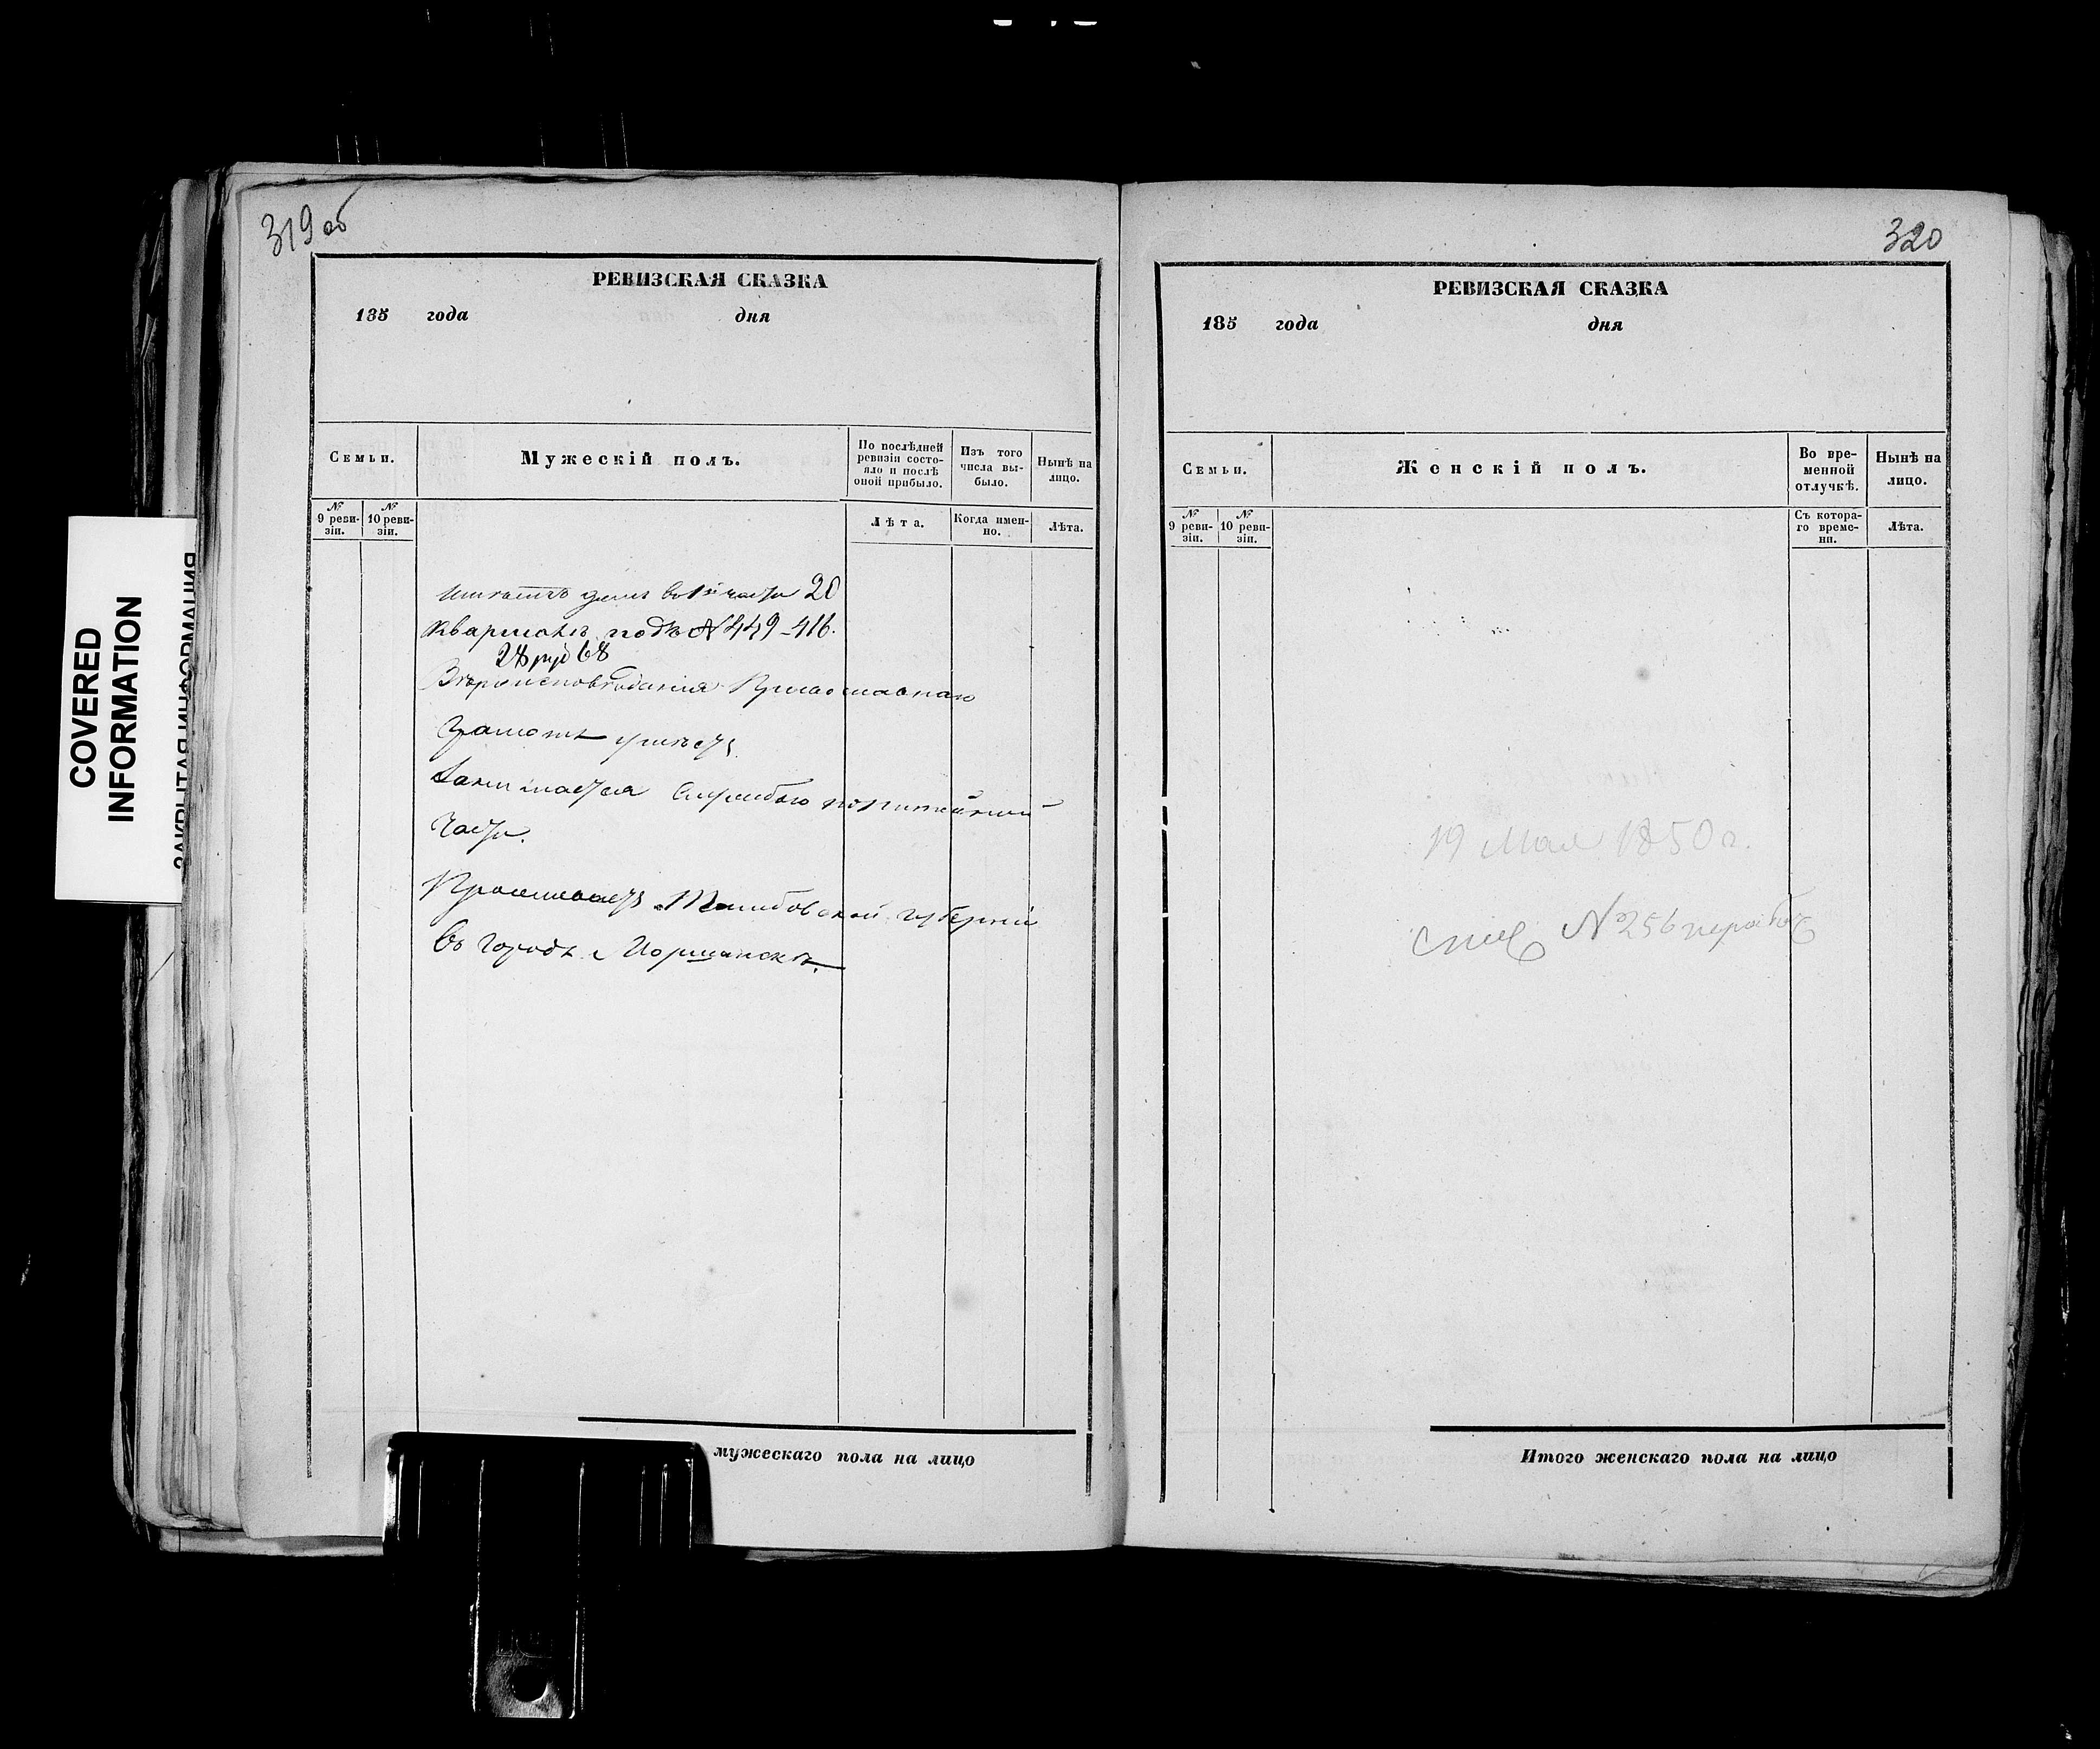 319 об
РЕВИЗСКАЯ СКАЗКА
185 года дня
Семьи.
Мужескій полъ.
По послѣдней ревизіи состояло и послѣ оной прибыло.
Изъ того числа выбыло.
Нынѣ на лицо.
№ 9 ревизіи.
№ 10 ревизіи.
Лѣта.
Когда именно.
Лѣта.
Имѣетъ домъ во 2й части 20
кварталѣ подъ № 449-416.
28 руб 68
Вѣроисповѣданія Православнаго
Грамотѣ умѣетъ
Занимается Службою по питейной
части.
Проживаетъ Тамбовской губерніи
въ городѣ Моршанскѣ.
мужескаго пола на лицо
320
РЕВИЗСКАЯ СКАЗКА
185 года дня
Семьи.
Женскій полъ.
Во временной отлучкѣ.
Нынѣ на лицо.
№ 9 ревизіи.
№ 10 ревизіи.
Съ котораго времени.
Лѣта.
19 Мая 1850 г.
№ 256
Итого женскаго пола на лицо
COVERED
INFORMATION
ЗАКРЫТАЯ ИНФОРМАЦИЯ